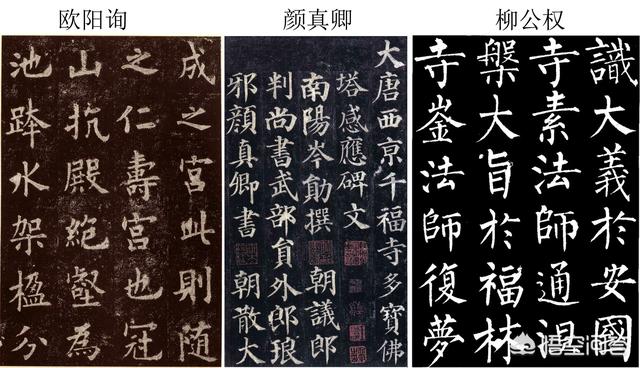 欧阳询
颜真卿
柳公权
成之宮此則随
之仁壽宮也冠
山抗殿絕壑為
池跨水架楹分
大唐西京千福寺多寶佛
塔感應碑文
南陽岑勛撰 朝議郎
判尚書武部員外郎琅
邪顏真卿書 朝散大
識大義於安國
寺素法師通涅
槃大旨於福林
寺崟法師復夢
悟空问答